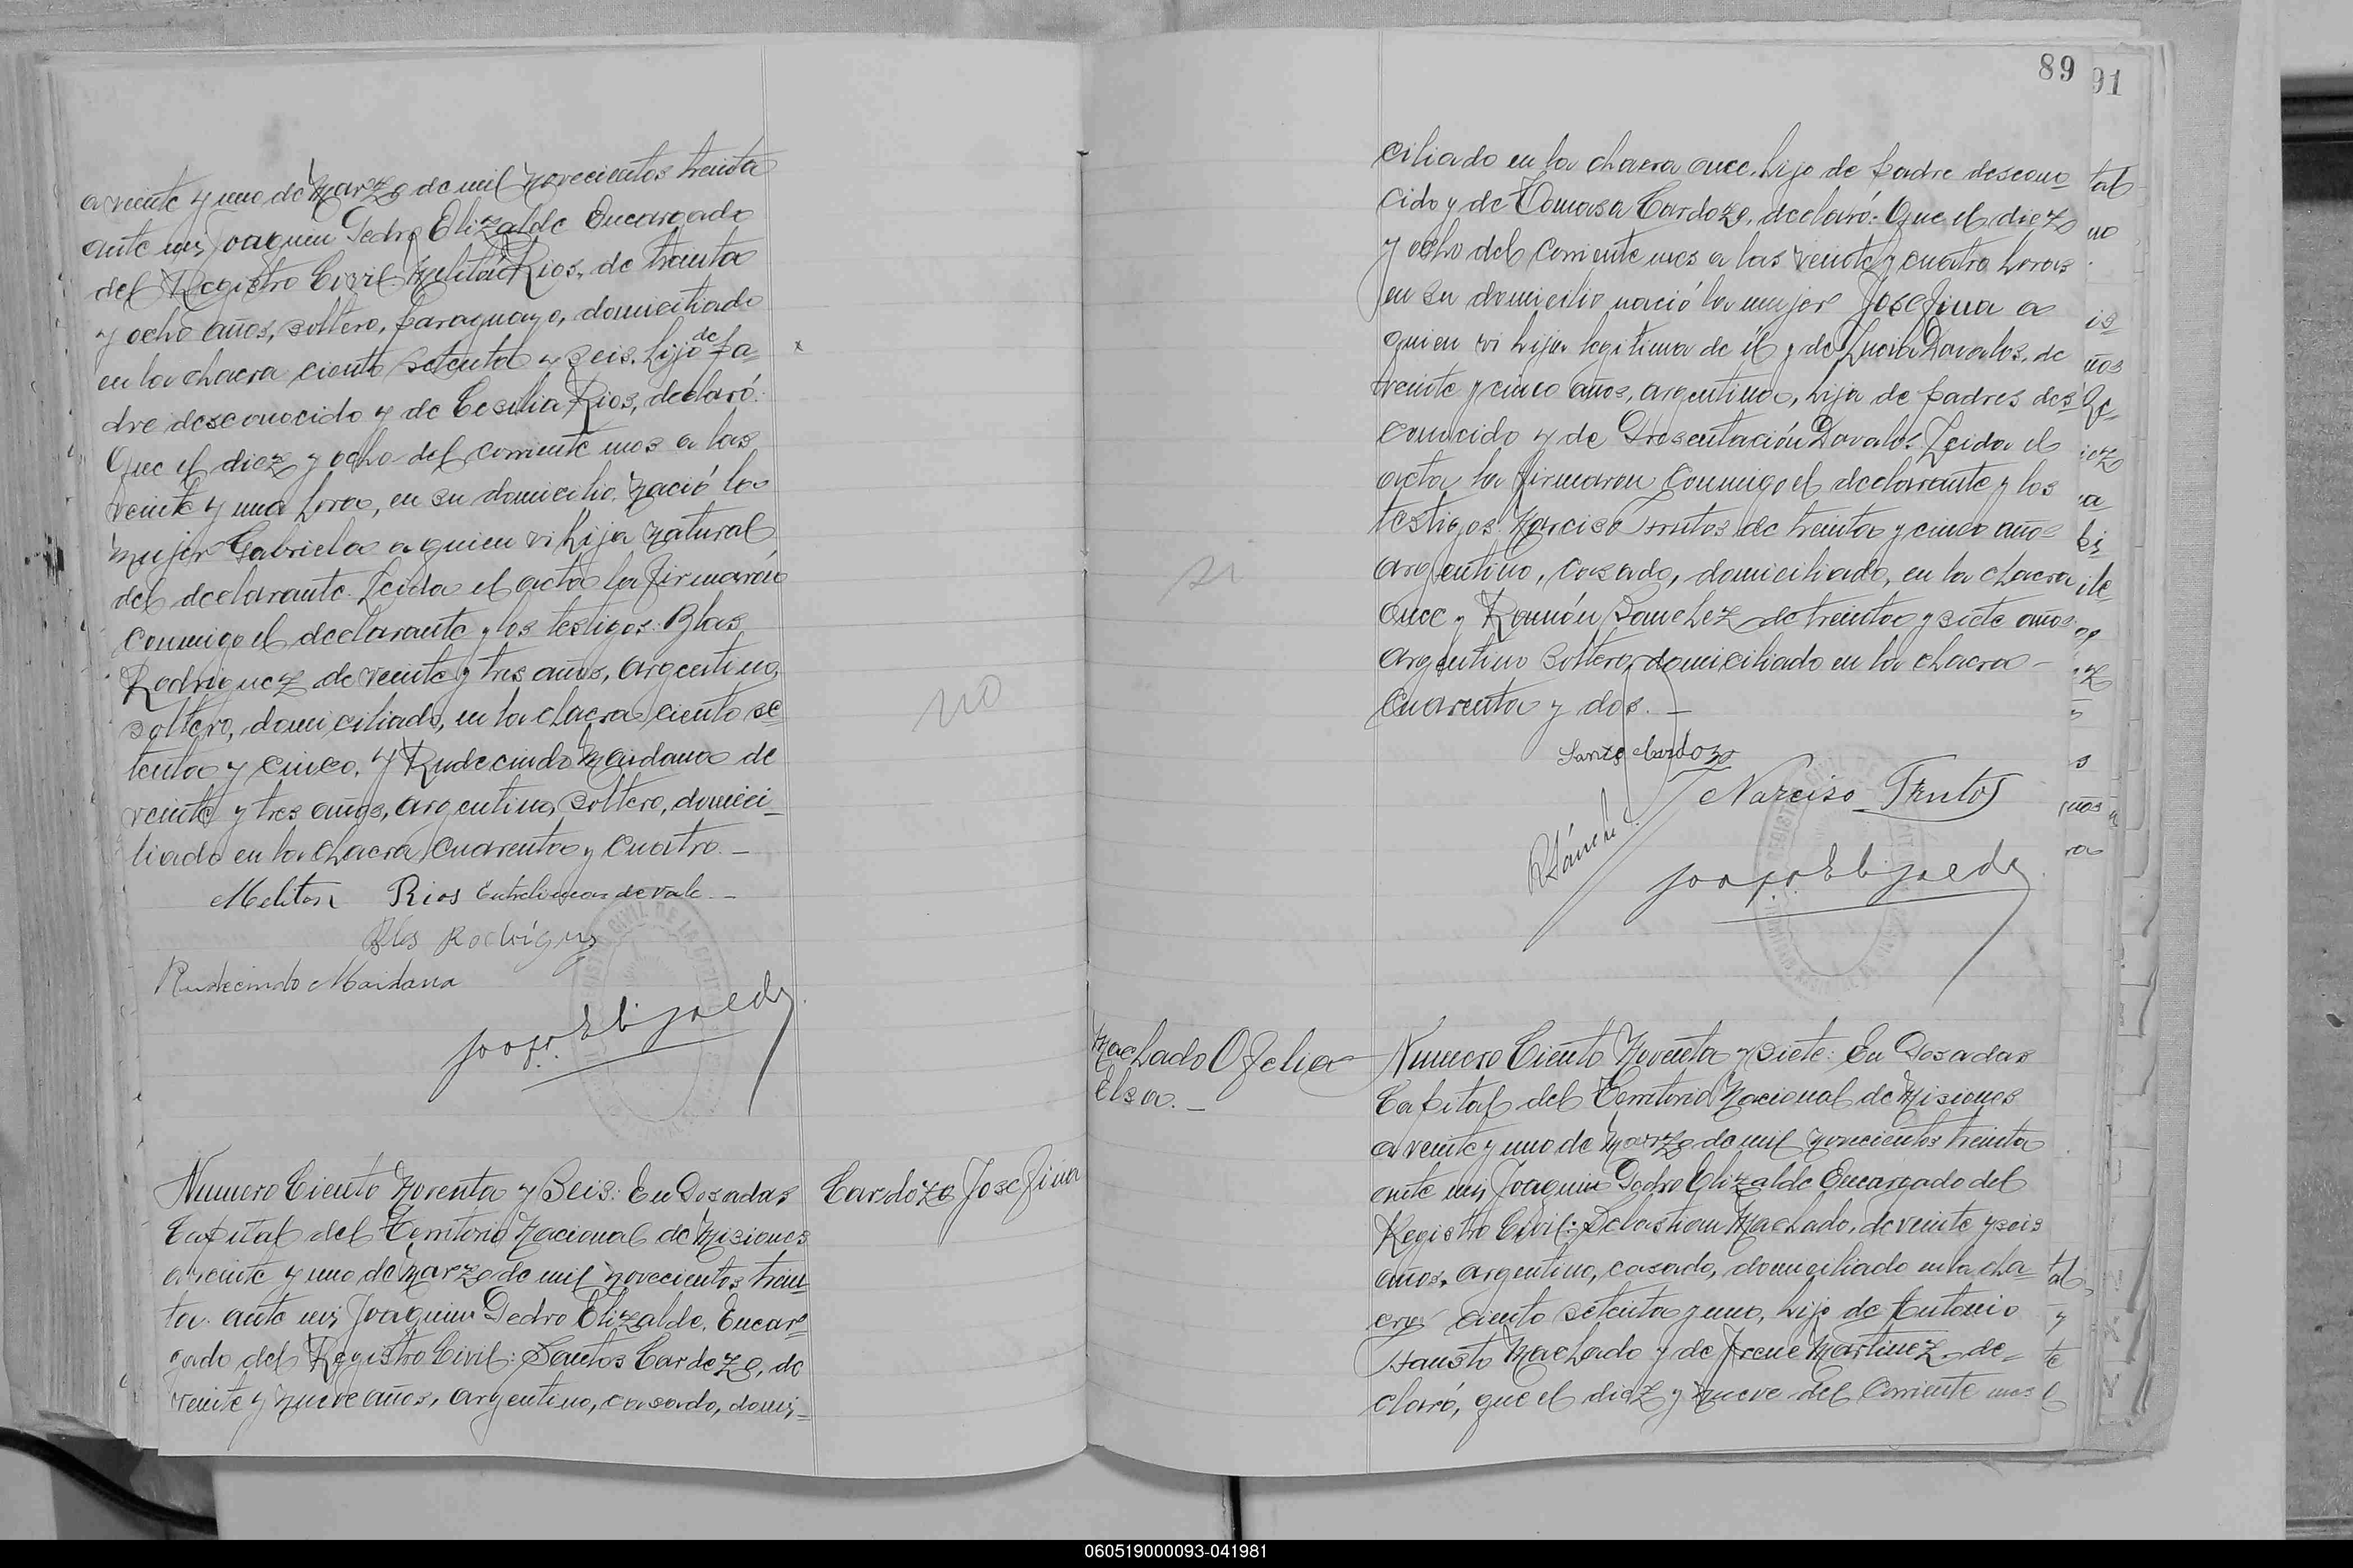 a veinte y uno de Marzo de mil Novecientos treinta
ante mi, Joaquin Pedro Elizalde Encargado
del Registro Civil Melitón Rios, de treinta
y ocho años, soltero, paraguayo, domiciliado
en la chacra ciento setenta y seis, hijo de pa-
dre desconocido y de Cesilia Rios, declaró:
Que el diez y ocho del corriente mes a las
veinte y una horas, en su domicilio nació la
mujer Gabriela a quien vi hija natural
del declarante. Leida el acta la firmaron
conmigo el declarante y los testigos: Blas
Rodriguez de veinte y tres años, argentino,
soltero, domiciliado, en la chacra ciento se
tenta y cinco, y Rudecindo Maidana de
veinte y tres años, argentino, soltero, domici-
liado en la chacra cuarenta y cuatro.-
Meliton Rios Entrelineas de vale.-
Blas Rodríguez
Rudecindo Maidana
no
Numero Ciento Noventa y Seis: En Posadas
Capital del Territorio Nacional de Misiones
a veinte y uno de Marzo de mil novecientos trein-
ta. ante mi, Joaquin Pedro Elizalde, Encar-
gado del Registro Civil: Santos Cardozo, de
veinte y nueve años, argentino, casado, domi-
Cardozo Josefina
89
91
ciliado en la chacra once, hijo de padre descono
cido y de Tomasa Cardozo, declaró: Que el diez
y ocho del corriente mes a las veinte y cuatro horas
en su domicilio nació la mujer Josefina a
quien vi hija legitima de él y de Lucila Davalos, de
veinte y cinco años, argentina, hija de padres des
conocido y de Presentación Davalos. Leida el
acta la firmaron conmigo el declarante y los
testigos: Narciso Frutos de treinta y cinco años
argentino, casado, domiciliado, en la chacra
once y Ramón Sanchez de treinta y siete años
argentino soltero, domiciliado en la chacra -
cuarenta y dos.-
Santos Cardozo
Narciso Frutos
si
Machado Ofelia
Elsa.-
Numero Ciento Noventa y Siete: En Posadas
Capital del Territorio Nacional de Misiones
a veinte y uno de Marzo de mil novecientos treinta
ante mi, Joaquin Pedro Elizalde Encargado del
Registro Civil: Sebastian Machado, de veinte y seis
años, argentino, casado, domiciliado en la cha-
cra ciento setenta y uno, hijo de Antonio
Fausto Machado y de Irene Martinez, de-
claró, que el diez y nueve del corriente mes
060519000093-041981